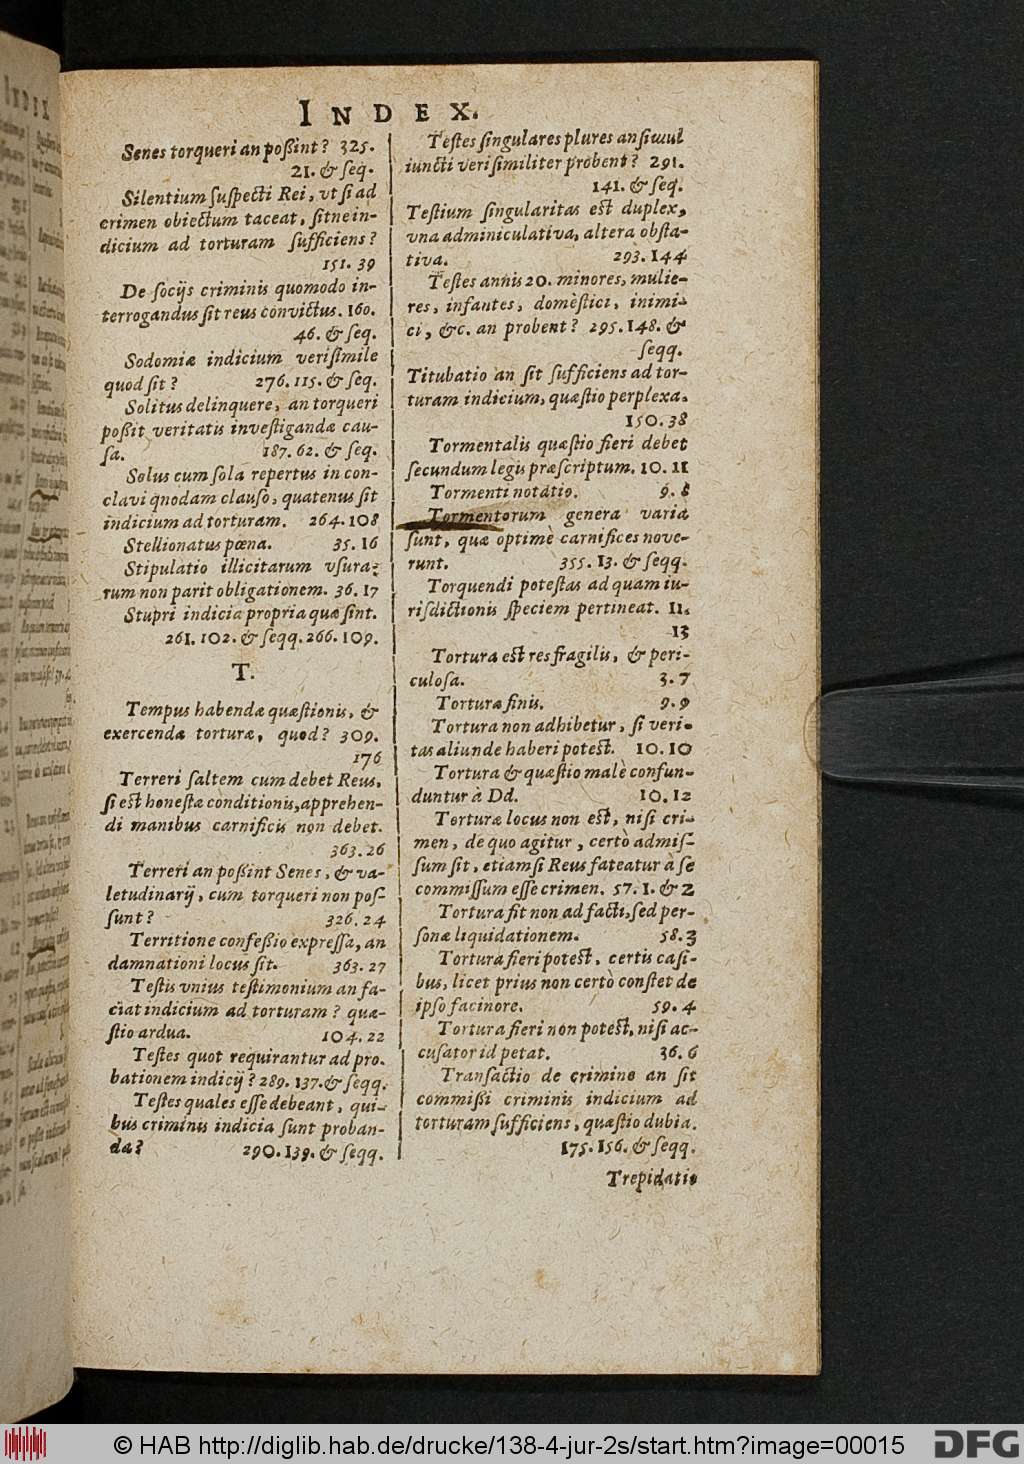 INDEX.
Senes torqueri an poßint? 325.
21. & seq.
Silentium suspecti Rei, vt si ad
crimen obiectum taceat, sitne in-
dicium ad torturam sufficiens?
151. 39
De socijs criminis quomodo in-
terrogandus sit reus convictus. 160.
46. & seq.
Sodomiæ indicium verisimile
quod sit? 276. 115. & seq.
Solitus delinquere, an torqueri
poßit veritatis investigandæ cau-
sa. 187. 62. & seq.
Solus cum sola repertus in con-
clavi quodam clauso, quatenus sit
indicium ad torturam. 264. 108
Stellionatus pœna. 35. 16
Stipulatio illicitarum vsura-
rum non parit obligationem. 36. 17
Stupri indicia propria quæ sint.
261. 102. & seqq. 266. 109.
T.
Tempus habendæ quæstionis, &
exercendæ torturæ, quod? 309.
176
Terreri saltem cum debet Reus,
si est honestæ conditionis, apprehen-
di manibus carnificis non debet.
363. 26
Terreri an poßint Senes, & va-
letudinarij, cum torqueri non pos-
sunt? 326. 24
Territione confeßio expressa, an
damnationi locus sit. 363. 27
Testis vnius testimonium an fa-
ciat indicium ad torturam? quæ-
stio ardua. 104. 22
Testes quot requirantur ad pro-
bationem indicij? 289. 137. & seqq.
Testes quales esse debeant, qui-
bus criminis indicia sunt proban-
da? 290. 139. & seqq.
Testes singulares plures an simul
iuncti verisimiliter probent? 291.
141. & seq.
Testium singularitas est duplex,
vna adminiculativa, altera obsta-
tiva. 293. 144
Testes annis 20. minores, mulie-
res, infantes, domèstici, inimi-
ci, &c. an probent? 295. 148. &
seqq.
Titubatio an sit sufficiens ad tor-
turam indicium, quæstio perplexa.
150. 38
Tormentalis quæstio fieri debet
secundum legis præscriptum. 10. 11
Tormenti notatio. 9. 8
Tormentorum genera varia
sunt, quæ optimè carnifices nove-
runt. 355. 13. & seqq.
Torquendi potestas ad quam iu-
risdictionis speciem pertineat. 11.
13
Tortura est res fragilis, & peri-
culosa. 3. 7
Torturæ finis. 9. 9
Tortura non adhibetur, si veri-
tas aliunde haberi potest. 10. 10
Tortura & quæstio malè confun-
duntur à Dd. 10. 12
Torturæ locus non est, nisi cri-
men, de quo agitur, certò admis-
sum sit, etiamsi Reus fateatur à se
commissum esse crimen. 57. 1. & 2
Tortura fit non ad facti, sed per-
sonæ liquidationem. 58. 3
Tortura fieri potest, certis casi-
bus, licet prius non certò constet de
ipso facinore. 59. 4
Tortura fieri non potest, nisi ac-
cusator id petat. 36. 6
Transactio de crimine an sit
commißi criminis indicium ad
torturam sufficiens, quæstio dubia.
175. 156. & seqq.
Trepidatio
© HAB http://diglib.hab.de/drucke/138-4-jur-2s/start.htm?image=00015
DFG